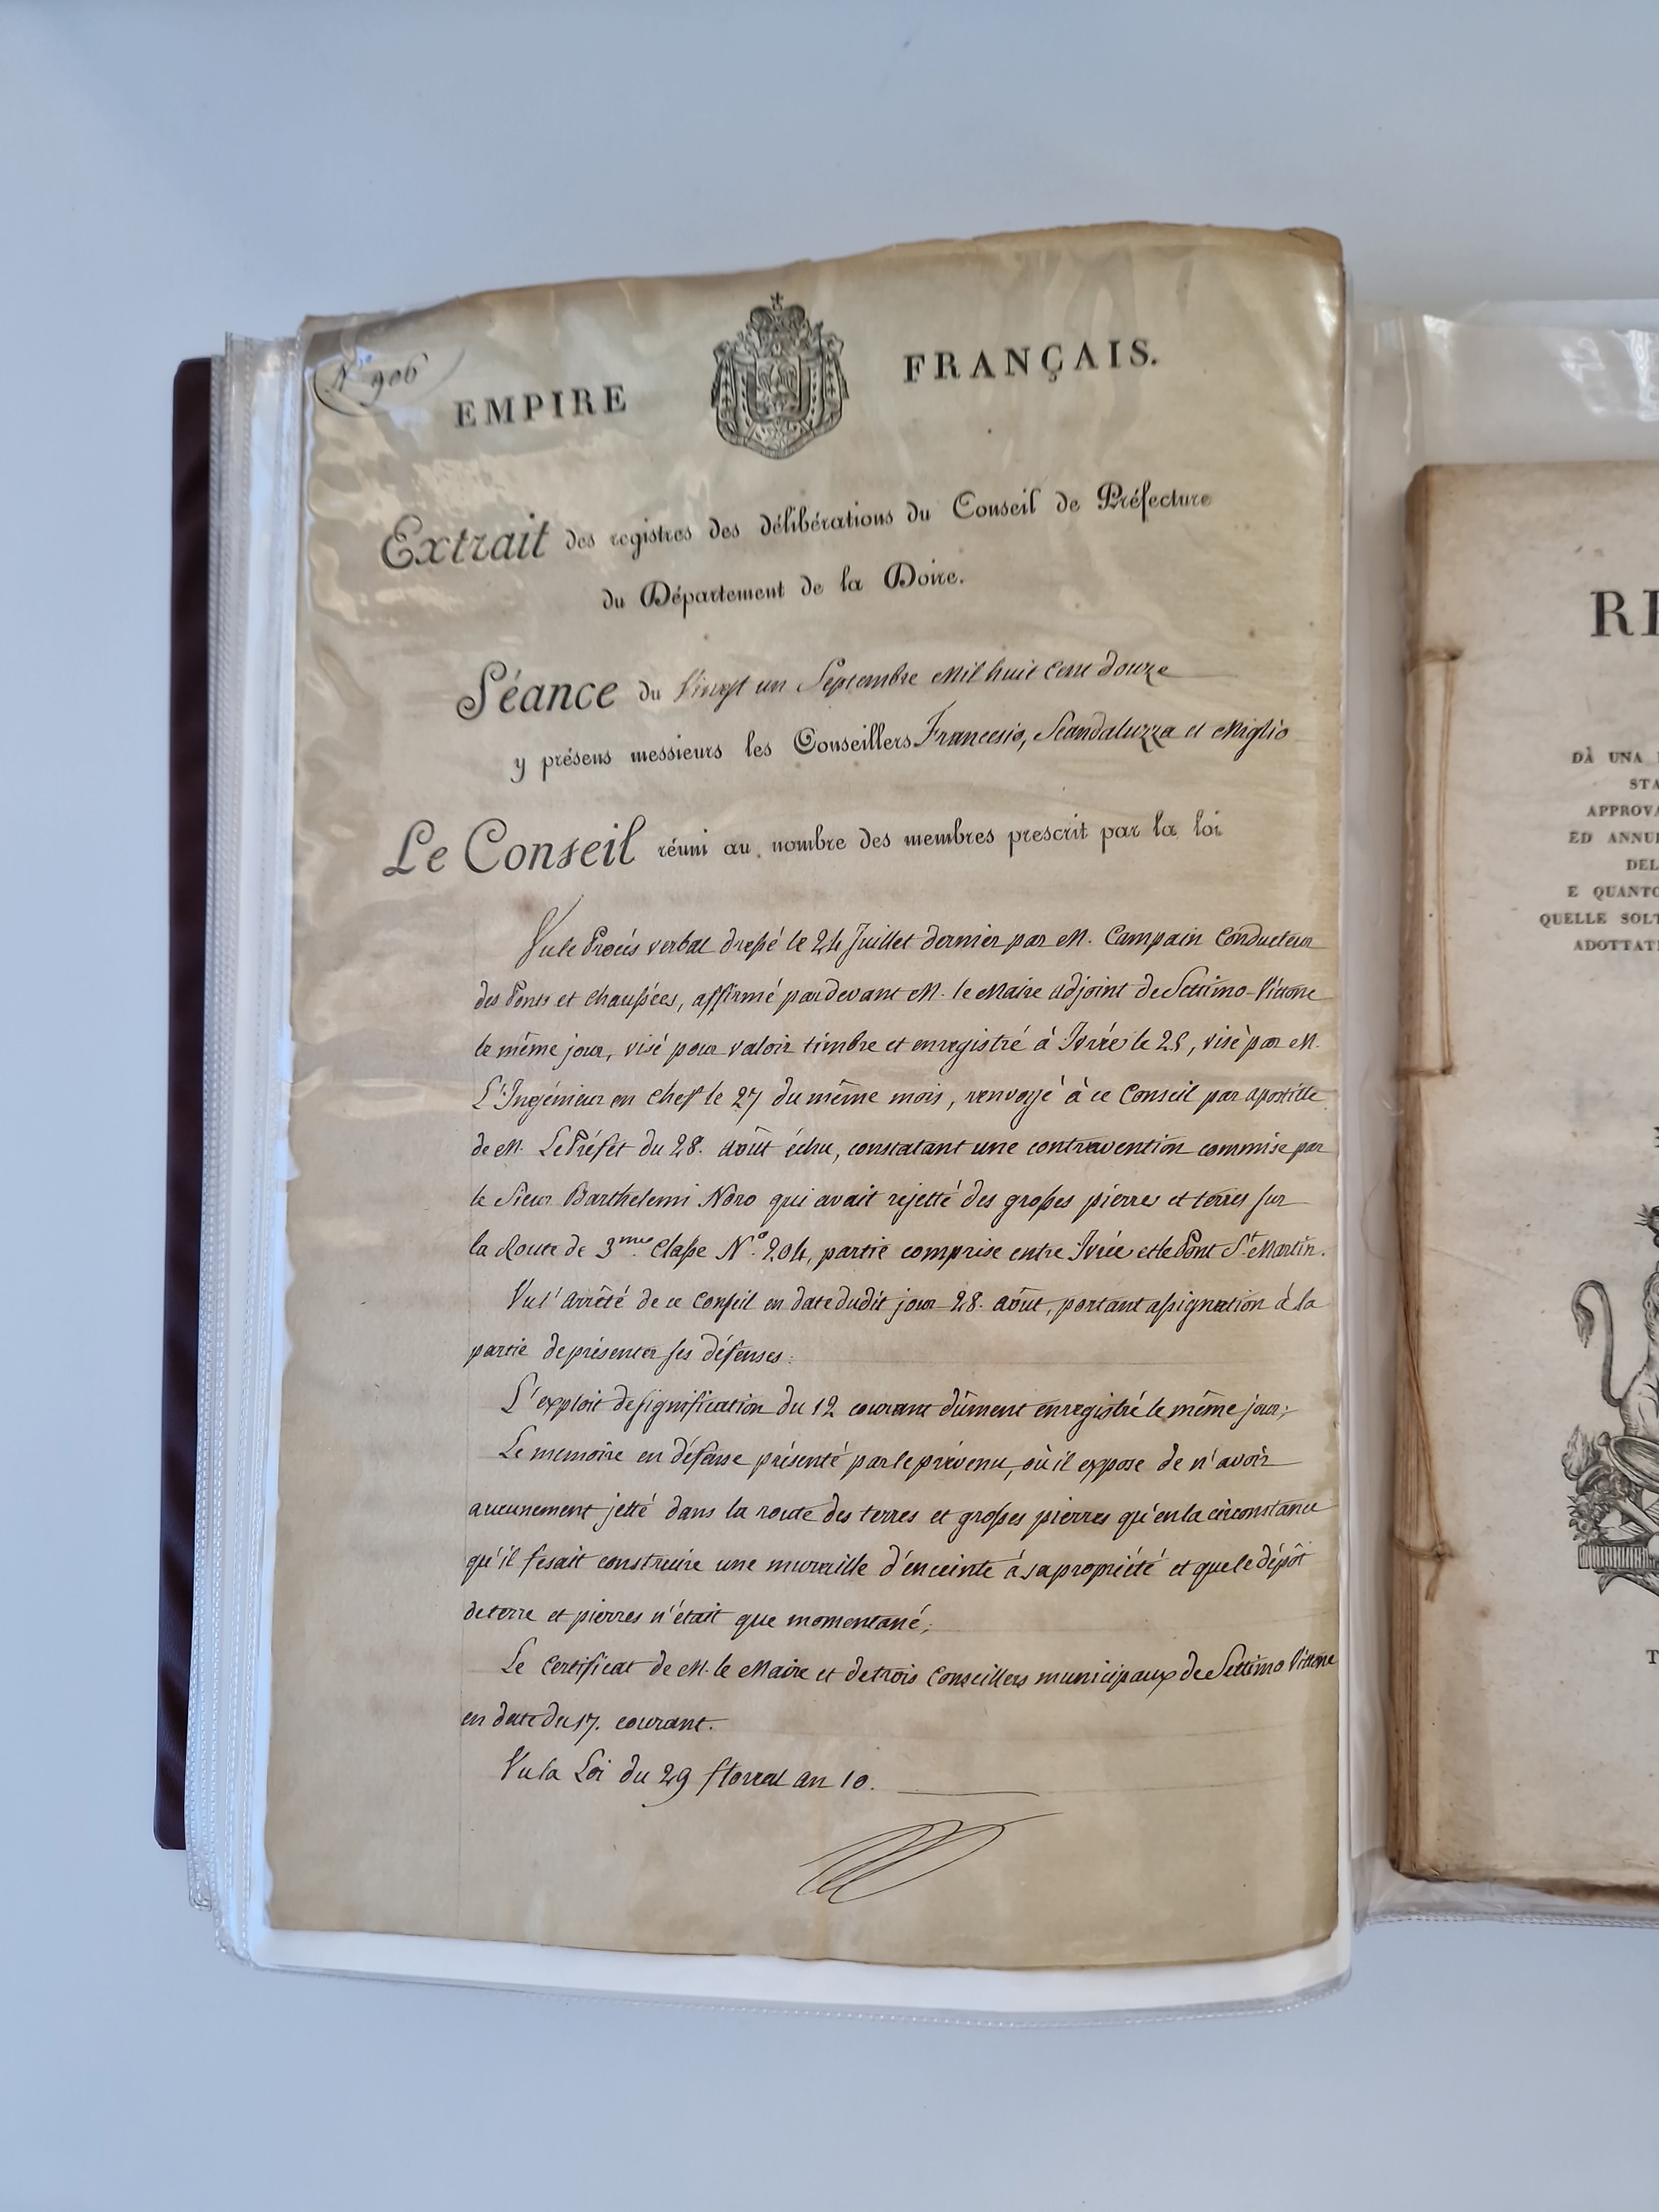 N.º 906
EMPIRE FRANÇAIS.
Extrait des registres des délibérations du Conseil de Préfecture
du Département de la Doire.
Séance du Vingt un Septembre Mil huit Cent douze
y présens messieurs les Conseillers Francesio, Scandaluzza et Miglio
Le Conseil réuni au nombre des membres prescrit par la loi
Vu le Procès verbal dressé le 24 Juillet dernier par M. Campain Conducteur
des Ponts et chaussées, affirmé pardevant M. le Maire adjoint de Settimo-Vittone
le même jour, visé pour valoir timbre et enregistré à Ivrée le 25, visé par M.
L'Ingénieur en chef le 27 du même mois, renvoyé à ce Conseil par apostille
de M. Le Préfet du 28. août échu, constatant une contravention commise par
le Sieur Barthelemi Noro qui avait rejetté des grosses pierres et terres sur
la Route de 3.me Classe N.º 204, partie comprise entre Ivrée et le Pont S.t Martin.
Vu l'arrêté de ce Conseil en date dudit jour 28. août, portant assignation à la
partie de présenter ses défenses:
L'exploit de signification du 12 courant dûment enregistré le même jour;
Le memoire en défense présenté par le prévenu, où il expose de n'avoir
aucunement jetté dans la route des terres et grosses pierres qu'en la circonstance
qu'il fesait construire une muraille d'enceinte à sa propriété et que le dépôt
de terre et pierres n'était que momentané;
Le Certificat de M. le Maire et de trois Conseillers municipaux de Settimo Vittone
en date du 17. courant.
Vu la Loi du 29 floreal an 10.
RE
DÀ UNA
STA
APPROVA
ED ANNU
DEL
E QUANTO
QUELLE SOLT
ADOTTAT
T